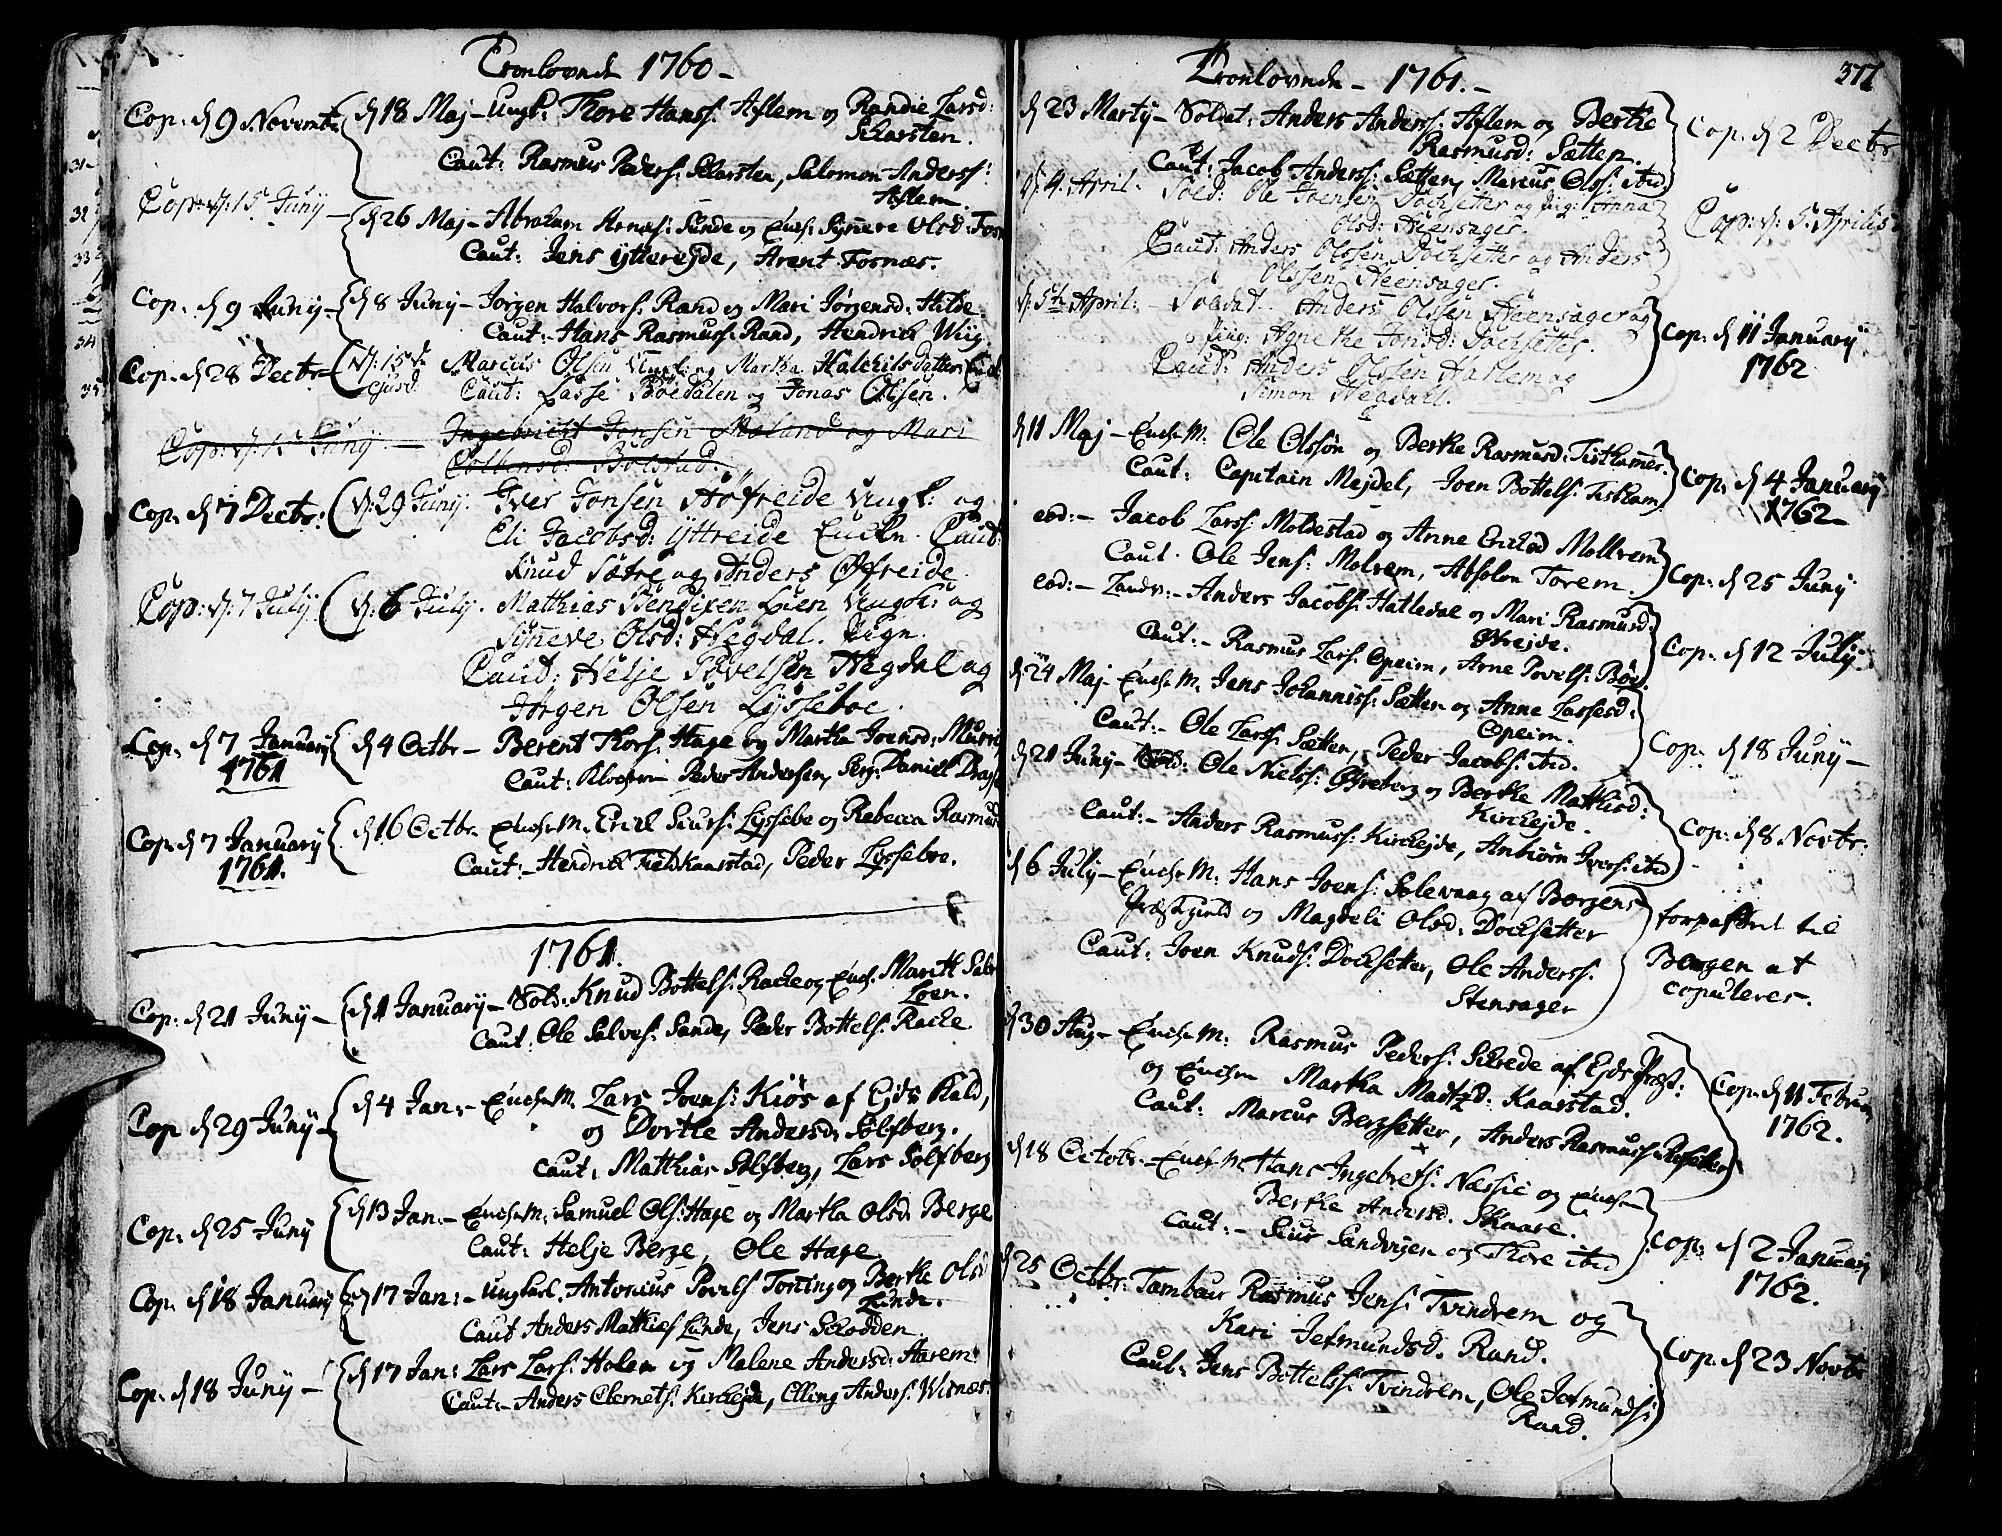 Tronlovnede 1760-
Cop: d 9 Novembr
d 18 Maj - Ungk: Thore Hanss: Aflem og Randie Larsd:
Skarsten.
Caut: Rasmus Peders: Skarsten, Salomon Anderss:
Aflem.
Cop: d: 15 Juny -
d 26 Maj - Abraham Arnes: Sunde og Enck: Synneve Olsd: Fosn
Caut: Jens Yttereyde, Arent Fosnæs.
Cop: d 9 Juny -
d 8 Juny - Jørgen Halvors: Rand og Mari Jørgensd: Hilde.
Caut:- Hans Rasmuss: Raad, Hendrik Wiig.
Cop. d 28 Decbr -
d: 15 de Marcus Olsen Ungk: og Martha Halchilsdatter
ejusd. Caut: Lasse Bødalen og Jonas Olsen.
Cop: d: 15 Juny. - Ingebricht Jonsen Moland og Mari
Colbensd: Bolstad.
Cop. d 7 Decbr:
d: 29 Juny. Iver Jonsen Høfreide Ungk: og
Eli Jacobsd: Yttreide Enckn. Caut:
Knud Sætre og Anders Øfreide
Cop: d: 7 July
d: 6 July. Matthias Bendixen Loen Ungk: og
Synneve Olsd: Hegdal. Pign.
Caut: Helje Povelsen Hegdal og
Jørgen Olsen Lyssebøe.
Cop. d 7 January
1761
d 4 Octbr - Berent Thors: Hage og Martha Joensd: Murri
Caut: Klocheren Peder Andersen, Serg: Daniel Drags
Cop. d 7 January
1761.
d 16 Octbr. Enche M. Erick Siurs: Lyssebø og Rebecca Rasmusd
Caut:- Hendrik Field Kaarstad, Peder Lyssebøe.
1761.
Cop: d 21 Juny -
d 1 January - Sold: Knud Bottels: Racke og Enck: Marith Salv
Loen.
Caut: Ole Salves: Sande, Peder Bottels: Racke
Cop d 29 Juny -
d 4 Jan:- Enche M. Lars Joens: Kiøs af Ejds Kald,
og Dorthe Andersd: Solfberg.
Caut: Matthias Solfberg, Lars Solfberg
Cop. d 25 Juny
d 13 Jan.- Enche M: Samuel Ols: Hage og Martha Olsd: Berge
Caut: Helje Berge, Ole Hage
Cop. d 18 January
d 17 Jan:- Ungkarl. Antonius Povels Toning og Berthe Olsd
Lunde.
Caut Anders Mathies Lunde, Jens Skodden.
Cop. d 18 Juny -
d 17 Jan: Lars Lars: Holem og Malene Andersd: Aarem
Caut:- Anders Clemets: Kirchejde, Elling Anders: Wisnæs.
Tronlovnede - 1761.-
377
d 23 Martij - Soldat: Anders Anderss: Aflem og Berthe
Rasmusd: Sætten.
Caut: Jacob Anderss: Sætten, Marcus Olss: ibid.
Cop. d 2 Decbr
d: 4. April. Sold: Ole Joensen Dochsetter og Pig: Anna
Olsd: Steensager.
Caut: Anders Olssen Dochsetter og Anders
Olssen Steensager.
Cop: d: 5. Aprilis.
d: 5te April: - Soldat Anders Olssen Steensager og
Pig: Agnethe Jonsd: Dochsetter.
Caut: Anders Olssen Hatlem og
Simon Hegdal.
Cop. d 11 January
1762
d 11 Maj - Enche M. Ole Olssøn og Berthe Rasmusd: Tisthamer.
Caut: Capitain Mejdel, Joen Bottels: Tistham
Cop. d 4 January
1762-
eod:- Jacob Larss: Moldestad og Anne Ericksd Mollvem
Caut. Ole Jens: Molvem, Absolon Torem.
Cop: d 25 Juny
eod:- Landv:- Anders Jacobs: Hatledal og Mari Rasmusd:
Øfrejde.
Caut.- Rasmus Lars: Opeim, Arne Povels: Bød.
Cop. d 12 July.
d 24 Maj - Enche M. Jens Johannss: Sætten og Anne Lassesd:
Opeim.
Caut:- Ole Larss: Sætten, Peder Jacobs: ibid.
Cop: d 18 Juny -
d 21 Juny - Sold: Ole Niels: Øfreberg og Berthe Mathisd:
Kirchejde.
Caut:- Anders Rasmuss: Kirchejde, Anbiørn Ivers: ibid
Cop: d 8 Novbr:
d 6 July - Enche M: Hans Joens: Solevaag af Borgens
Præstegield og Magdeli Olsd: Dochsetter
Caut: Joen Knuds: Dochsetter, Ole Anderss:
Stensager
forpasseret til
Bergen at
copuleres.
d 30 Aug - Enche M: Rasmus Peders: Skrede af Ejds Præst:
og Enchen Martha Madtzd: Kaarstad.
Caut: Marcus Bergsetter, Anders Rasmuss: Rosæter
Cop. d 11 Februa
1762.
d 18 Octobr. - Enche M Hans Ingebrets: Næssie og Enchen
Berthe Andersd. Skaare.
Caut: - Siur Sandvigen og Thore ibid
Cop: d 2 January
1762.
d 25 Octbr: Tambur Rasmus Jens: Tvindrem og
Kari Jetmundsd. Rand.
Caut: Jens Bottelss: Tvindrem, Ole Jetmunds:
Raad.
Cop. d 23 Novbr